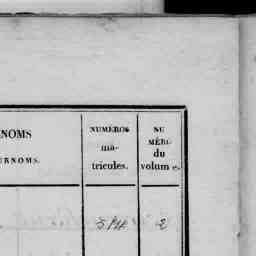 NOMS
URNOMS.
NUMÉROS
ma-
tricules.
NU
MÉRO
du
volume.
2